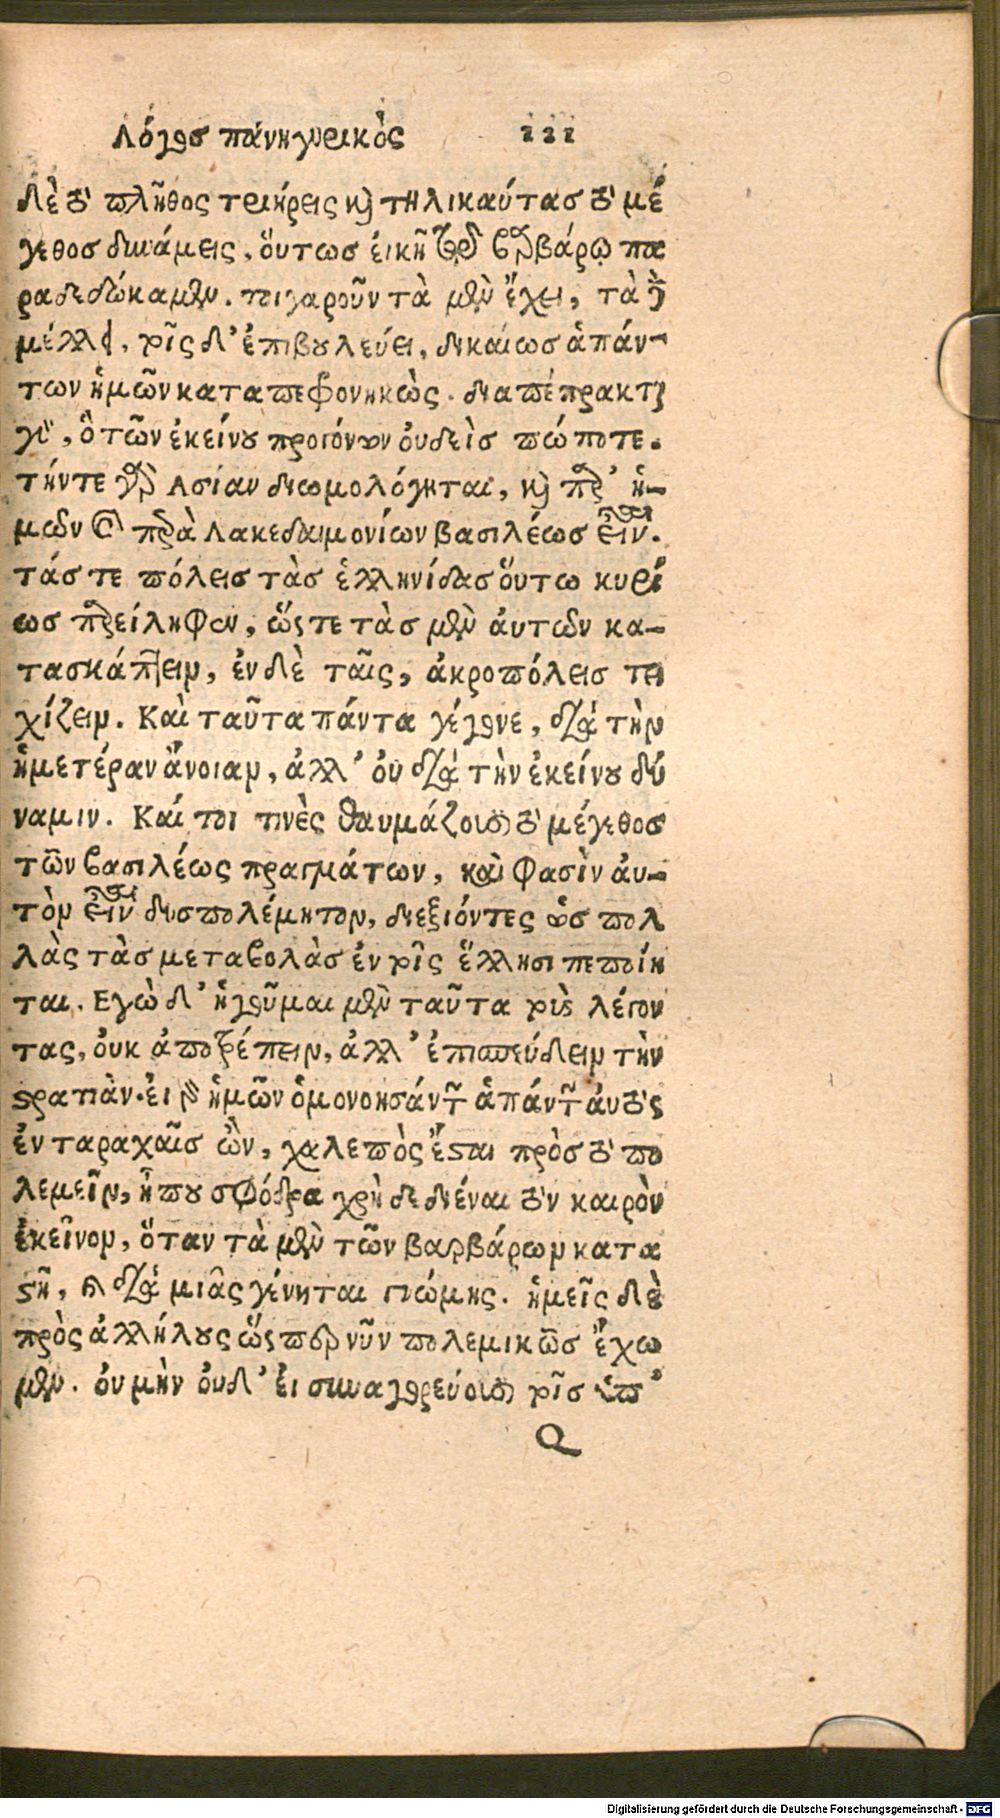 Λόγος πανηγυρικὸς 111
δὲ τὸ πλῆθος τριήρεις καὶ τηλικαύτας τὸ μέ
γεθος δυνάμεις, ὅυτως ἐικῆ τῷ βαρβάρῳ πα
ραδεδώκαμεν. τοιγαροῦν τὰ μὲν ἔχει, τὰ δὲ
μέλλει, τοῖς δ' ἐπιβουλεύει, δικαίως ἁπάν-
των ἡμῶν καταπεφρονηκὼς. διαπέπρακται
γὰρ, ὃ τῶν ἐκείνου προγόνων ὀυδεὶς πώποτε.
τήντε γὰρ Ασίαν διωμολόγηται, καὶ παρ' ἡ-
μῶν καὶ παρὰ Λακεδαιμονίων βασιλέως εἶναι.
τάς τε πόλεις τὰς ἑλληνίδας ὅυτω κυρί
ως παρείληφεν, ὥςτε τὰς μὲν ἀυτῶν κα-
τασκάπτειν, ἐν δὲ ταῖς, ἀκροπόλεις τει
χίζειν. Καὶ ταῦτα πάντα γέγονε, διὰ τὴν
ἡμετέραν ἄνοιαν, ἀλλ' ὀυ διὰ τὴν ἐκείνου δύ
ναμιν. Καί τοι τινὲς θαυμάζουσι τὸ μέγεθος
τῶν βασιλέως πραγμάτων, καὶ φασὶν ἀυ-
τὸν εἶναι δυσπολέμητον, διεξιόντες ὡς πολ
λὰς τὰς μεταβολὰς ἐν τοῖς ἕλλησι πεποίη
ται. Εγὼ δ' ἡγοῦμαι μὲν ταῦτα τοὺς λέγον
τας, ὀυκ ἀποτρέπειν, ἀλλ' ἐπισπεύδειν τὴν
στρατιὰν. ἐι γὰρ ἡμῶν ὁμονοησάντων ἁπάντων ἀυτὸς
ἐν ταραχαῖς ὢν, χαλεπὸς ἔσται πρὸς τὸ πο
λεμεῖν, ἦπου σφόδρα χρὴ δεδιέναι τὸν καιρὸν
ἐκεῖνον, ὅταν τὰ μὲν τῶν βαρβάρων κατα
στῇ, καὶ διὰ μιᾶς γένηται γνώμης. ἡμεῖς δὲ
πρὸς ἀλλήλους ὥςπερ νῦν πολεμικῶς ἔχω
μεν. ὀυ μὴν ὀυδ' ἐι συναγορεύουσι τοῖς ὑπ'
Q
Digitalisierung gefördert durch die Deutsche Forschungsgemeinschaft - DFG